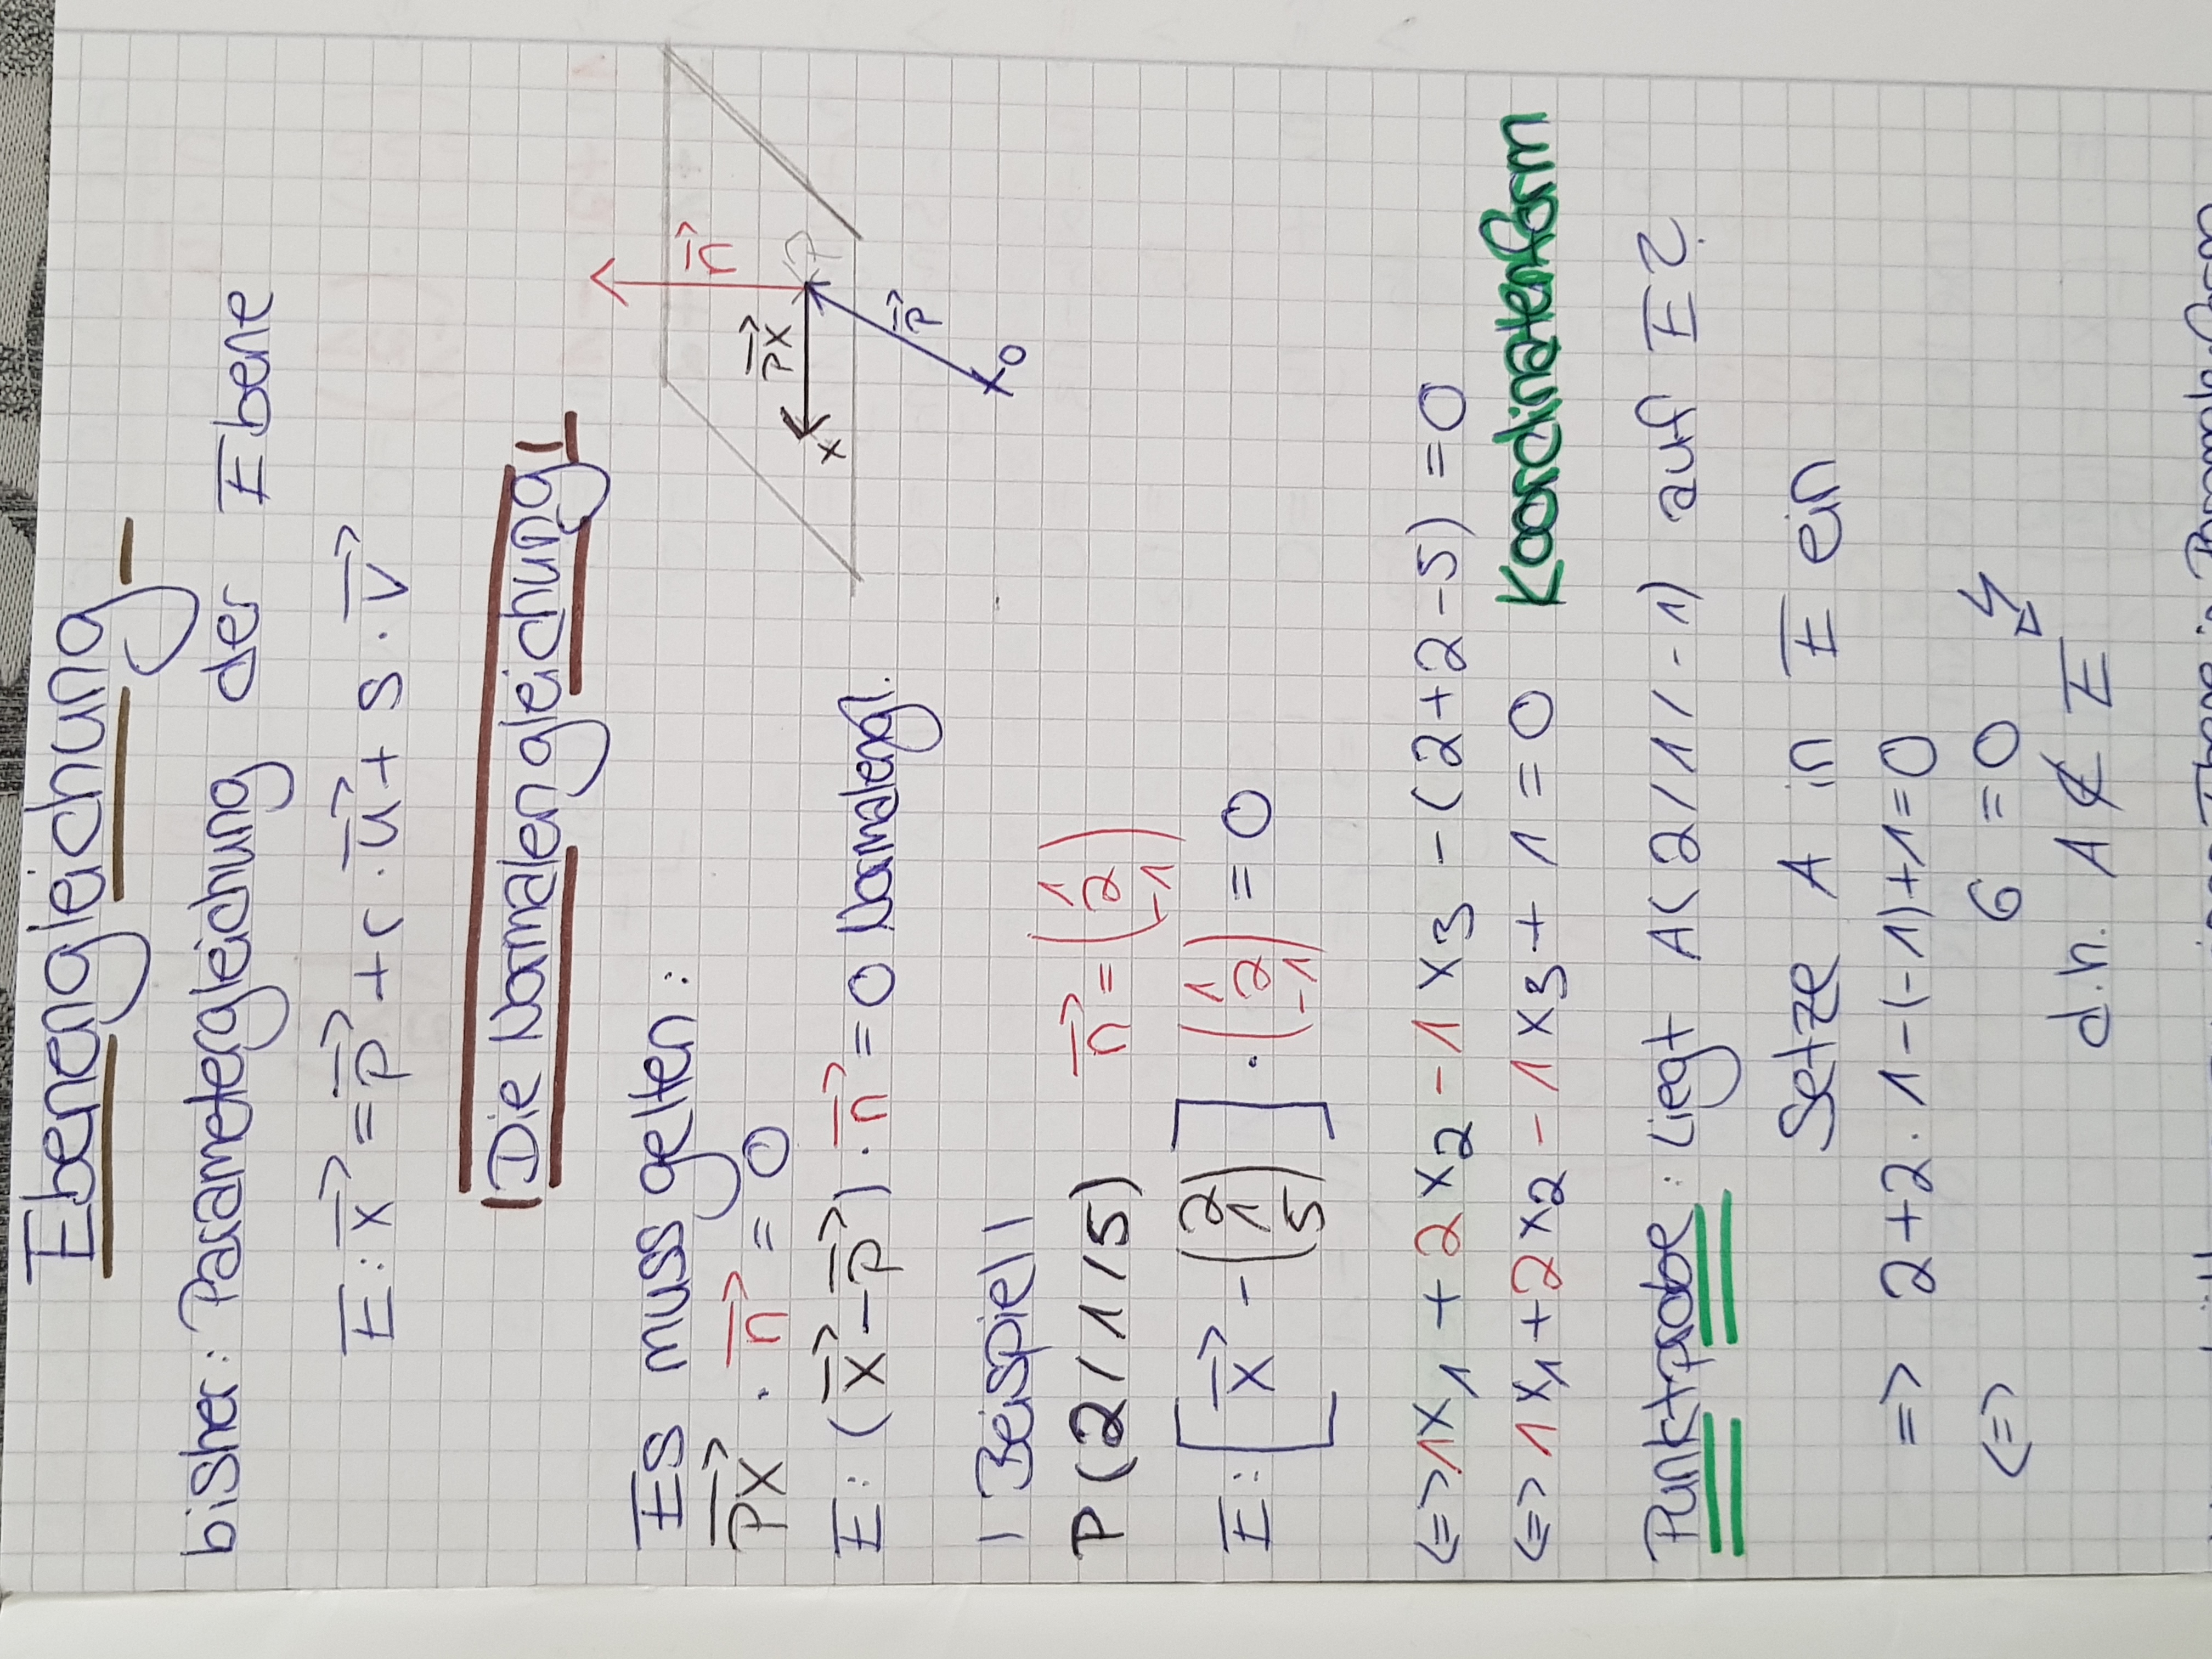 Ebenengleichung
bisher: Parametergleichung der Ebene
E: x⃗ = p⃗ + r · u⃗ + s · v⃗
Die Normalengleichung
Es muss gelten:
P⃗X · n⃗ = 0
E: (x⃗ - p⃗) · n⃗ = 0 Normalengl.
n⃗
PX⃗
P
x
p⃗
0
Beispiel
P (2/1/5) n⃗ = (1 2 -1)
E: [x⃗ - (2 1 5)] · (1 2 -1) = 0
<=> 1x₁ + 2x₂ - 1x₃ - (2+2-5) = 0
<=> 1x₁ + 2x₂ - 1x₃ + 1 = 0 Koordinatenform
Punktprobe: Liegt A(2/1/-1) auf E?
Setze A in E ein
=> 2+2·1-(-1)+1=0
<=> 6 = 0 ↯
d.h. A ∉ E